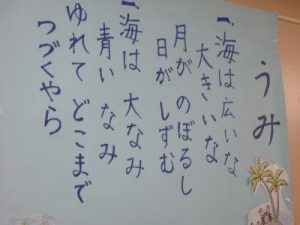 うみ
一、海は広いな
大きいな
月が のぼるし
日が しずむ
一、海は 大なみ
青い なみ
ゆれて どこまで
つづくやら